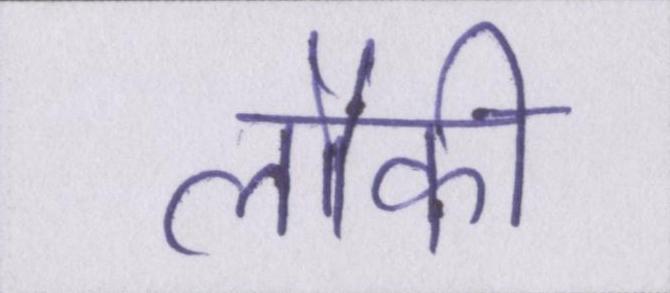 लौकी